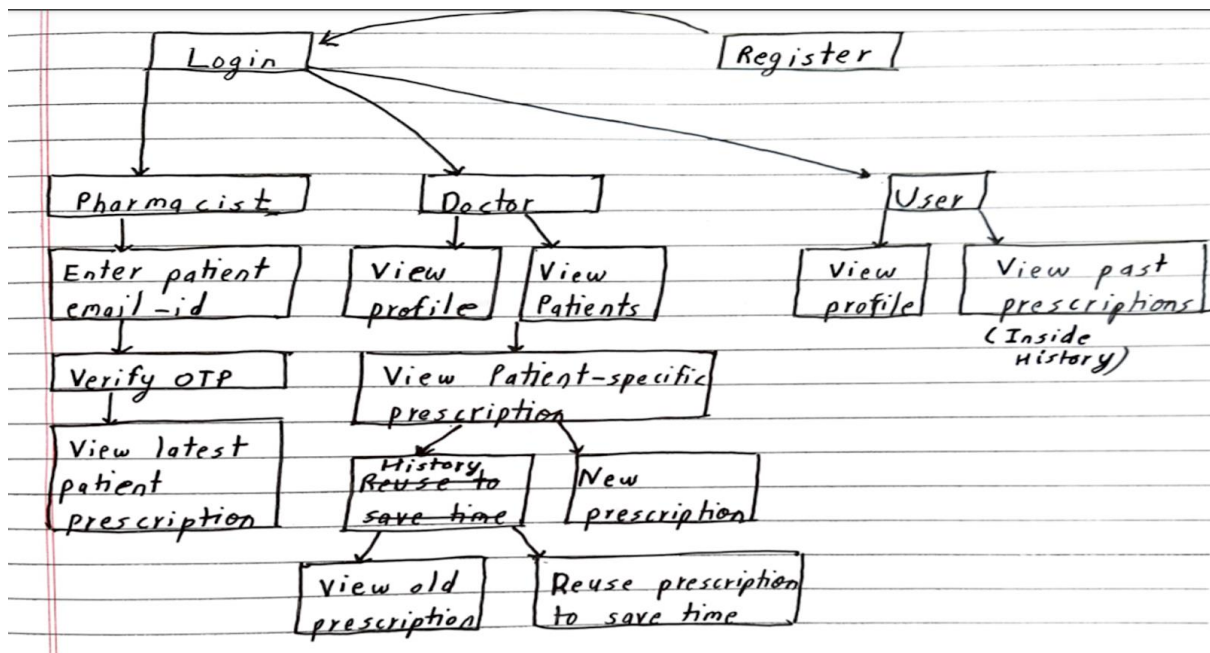 Login
Register
Pharmacist
Doctor
User
Enter patient
email-id
View
profile
View
Patients
View
profile
View past
prescriptions
(Inside
History)
Verify OTP
View Patient-specific
prescription
View latest
patient
prescription
History
Reuse to
save time
New
prescription
View old
prescription
Reuse prescription
to save time